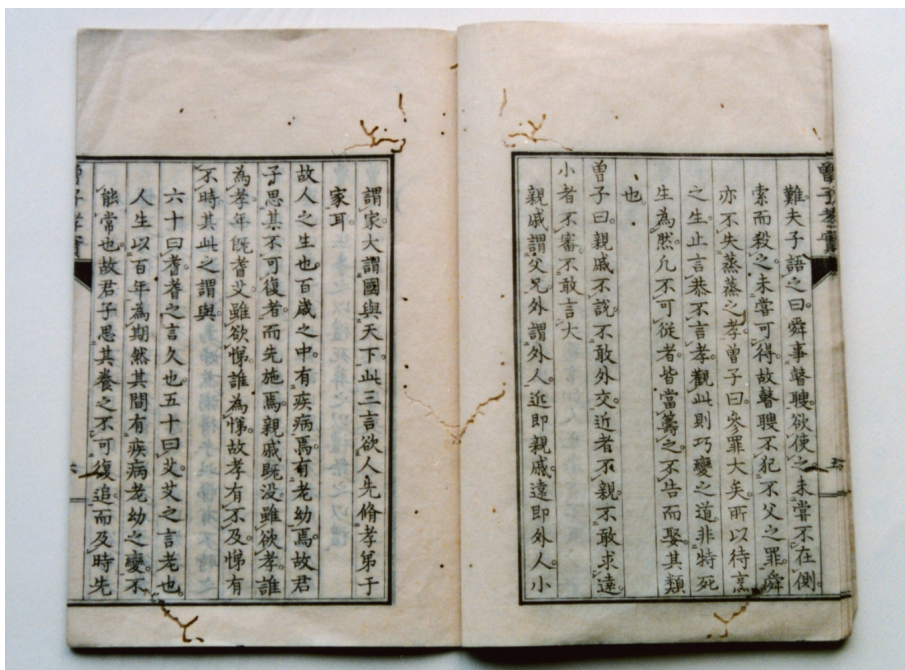 曾子孝實
難夫子語之曰舜事瞽瞍欲使之未嘗不在側
索而殺之未嘗可得故瞽瞍不犯不父之罪舜
亦不失蒸蒸之孝曾子曰參罪大矣所以待烹
之生止言恭不言孝觀此則巧變之道非特死
生為然凡不可從者皆當籌之不告而娶其類
也
曾子曰親戚不說不敢外交近者不親不敢求遠
小者不審不敢言大
親戚謂父兄外謂外人近即親戚遠即外人小
謂家大謂國與天下此三言欲人先脩孝弟于
家耳
故人之生也百歲之中有疾病焉有老幼焉故君
子思其不可復者而先施焉親戚既没雖欲孝誰
為孝年既耆艾雖欲悌誰為悌故孝有不及悌有
不時其此之謂與
六十曰耆耆之言久也五十曰艾艾之言老也
人生以百年為期然其間有疾病老幼之變不
能常也故君子思其養之不可復追而及時先
曾子孝實